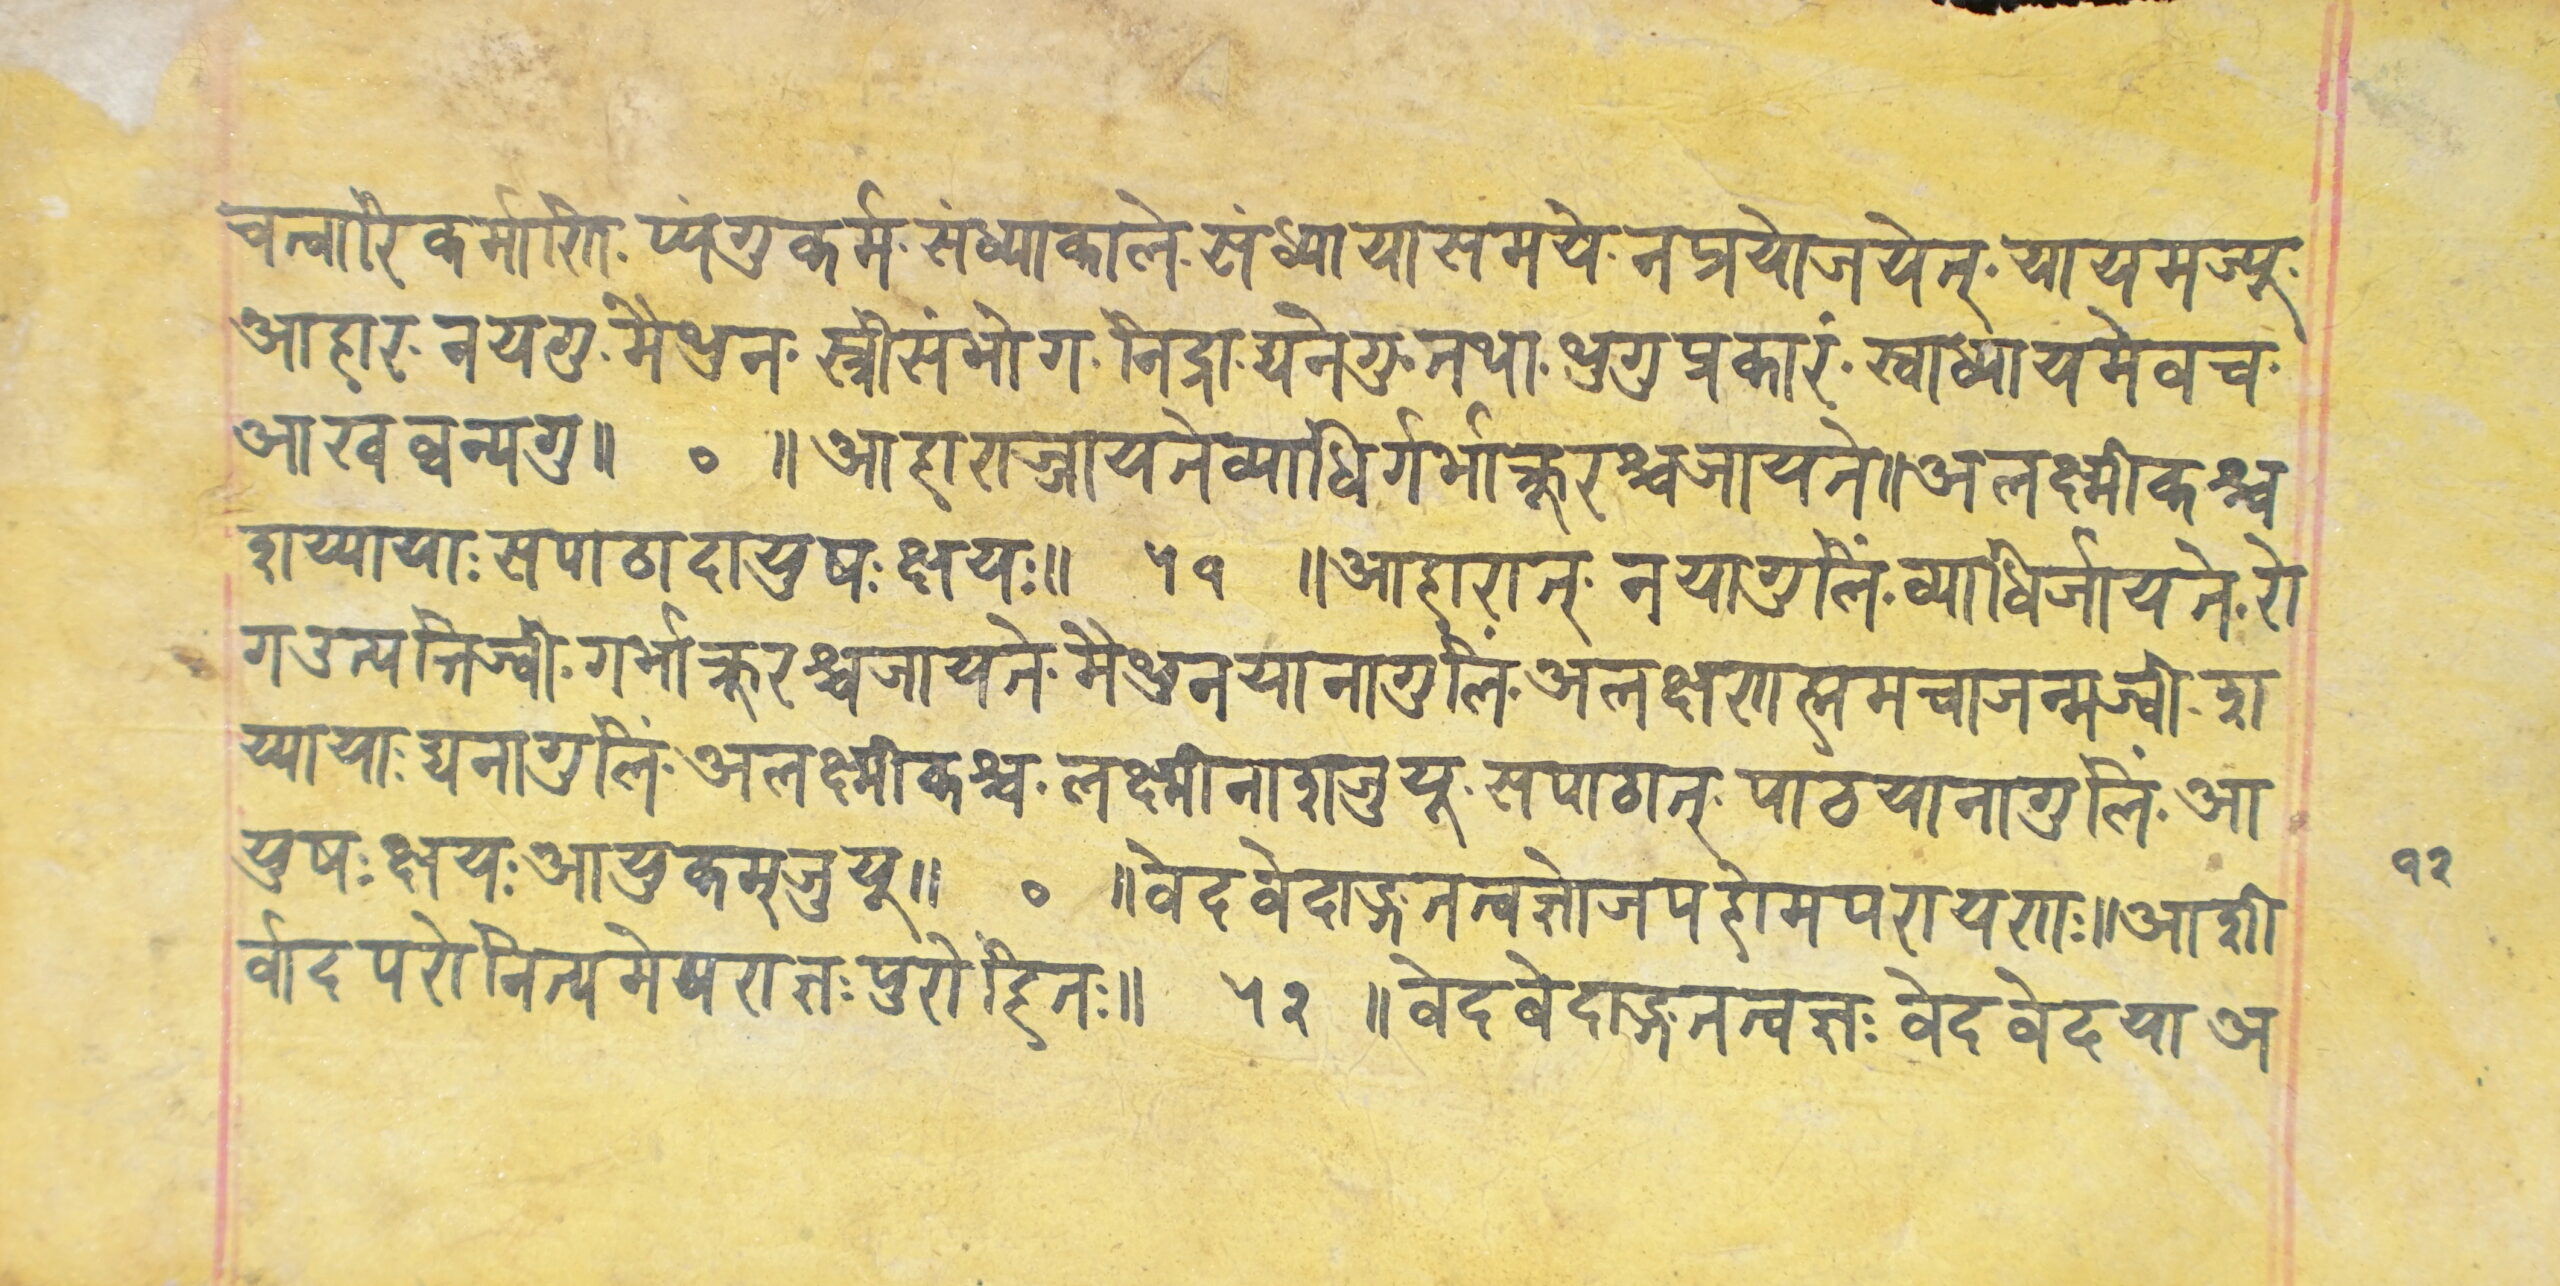 चत्वारि कर्माणि. प्यंगु कर्म. संध्याकाले. संध्याया समये. न प्रयोजयेत्. यायमज्यू.
आहार. नयगु. मैथुन. स्त्रीसंभोग. निद्रा. द्यनेगु. तथा. थुगु प्रकारं. स्वाध्यायमेव च.
आखव्वन्यगु॥ ० ॥आहाराज्जायते व्याधिर्गर्भाक्रूरश्च जायते॥अलक्ष्मीकश्च
शय्यायाः सपाठादायुषः क्षयः॥ ५१ ॥आहारात्. नयागुलिं. व्याधिर्जायते. रो
ग उत्पत्तिज्वी. गर्भाक्रूरश्च जायते. मैथुनयानागुलिं. अलक्षणात्ममचाजन्मज्वी. श
य्यायाः द्यनागुलिं. अलक्ष्मीकश्च. लक्ष्मीनाशजुयू. सपाठात्. पाठयानागुलिं. आ
युषः क्षयः आयुकमजुयू॥ ० ॥वेदवेदाङ्गतत्वज्ञो जपहोमपरायणाः॥आशी
र्वादपरो नित्यमेष राज्ञः पुरोहितः॥ ५२ ॥वेदवेदाङ्गतत्वज्ञः वेदवेदया अ
१२